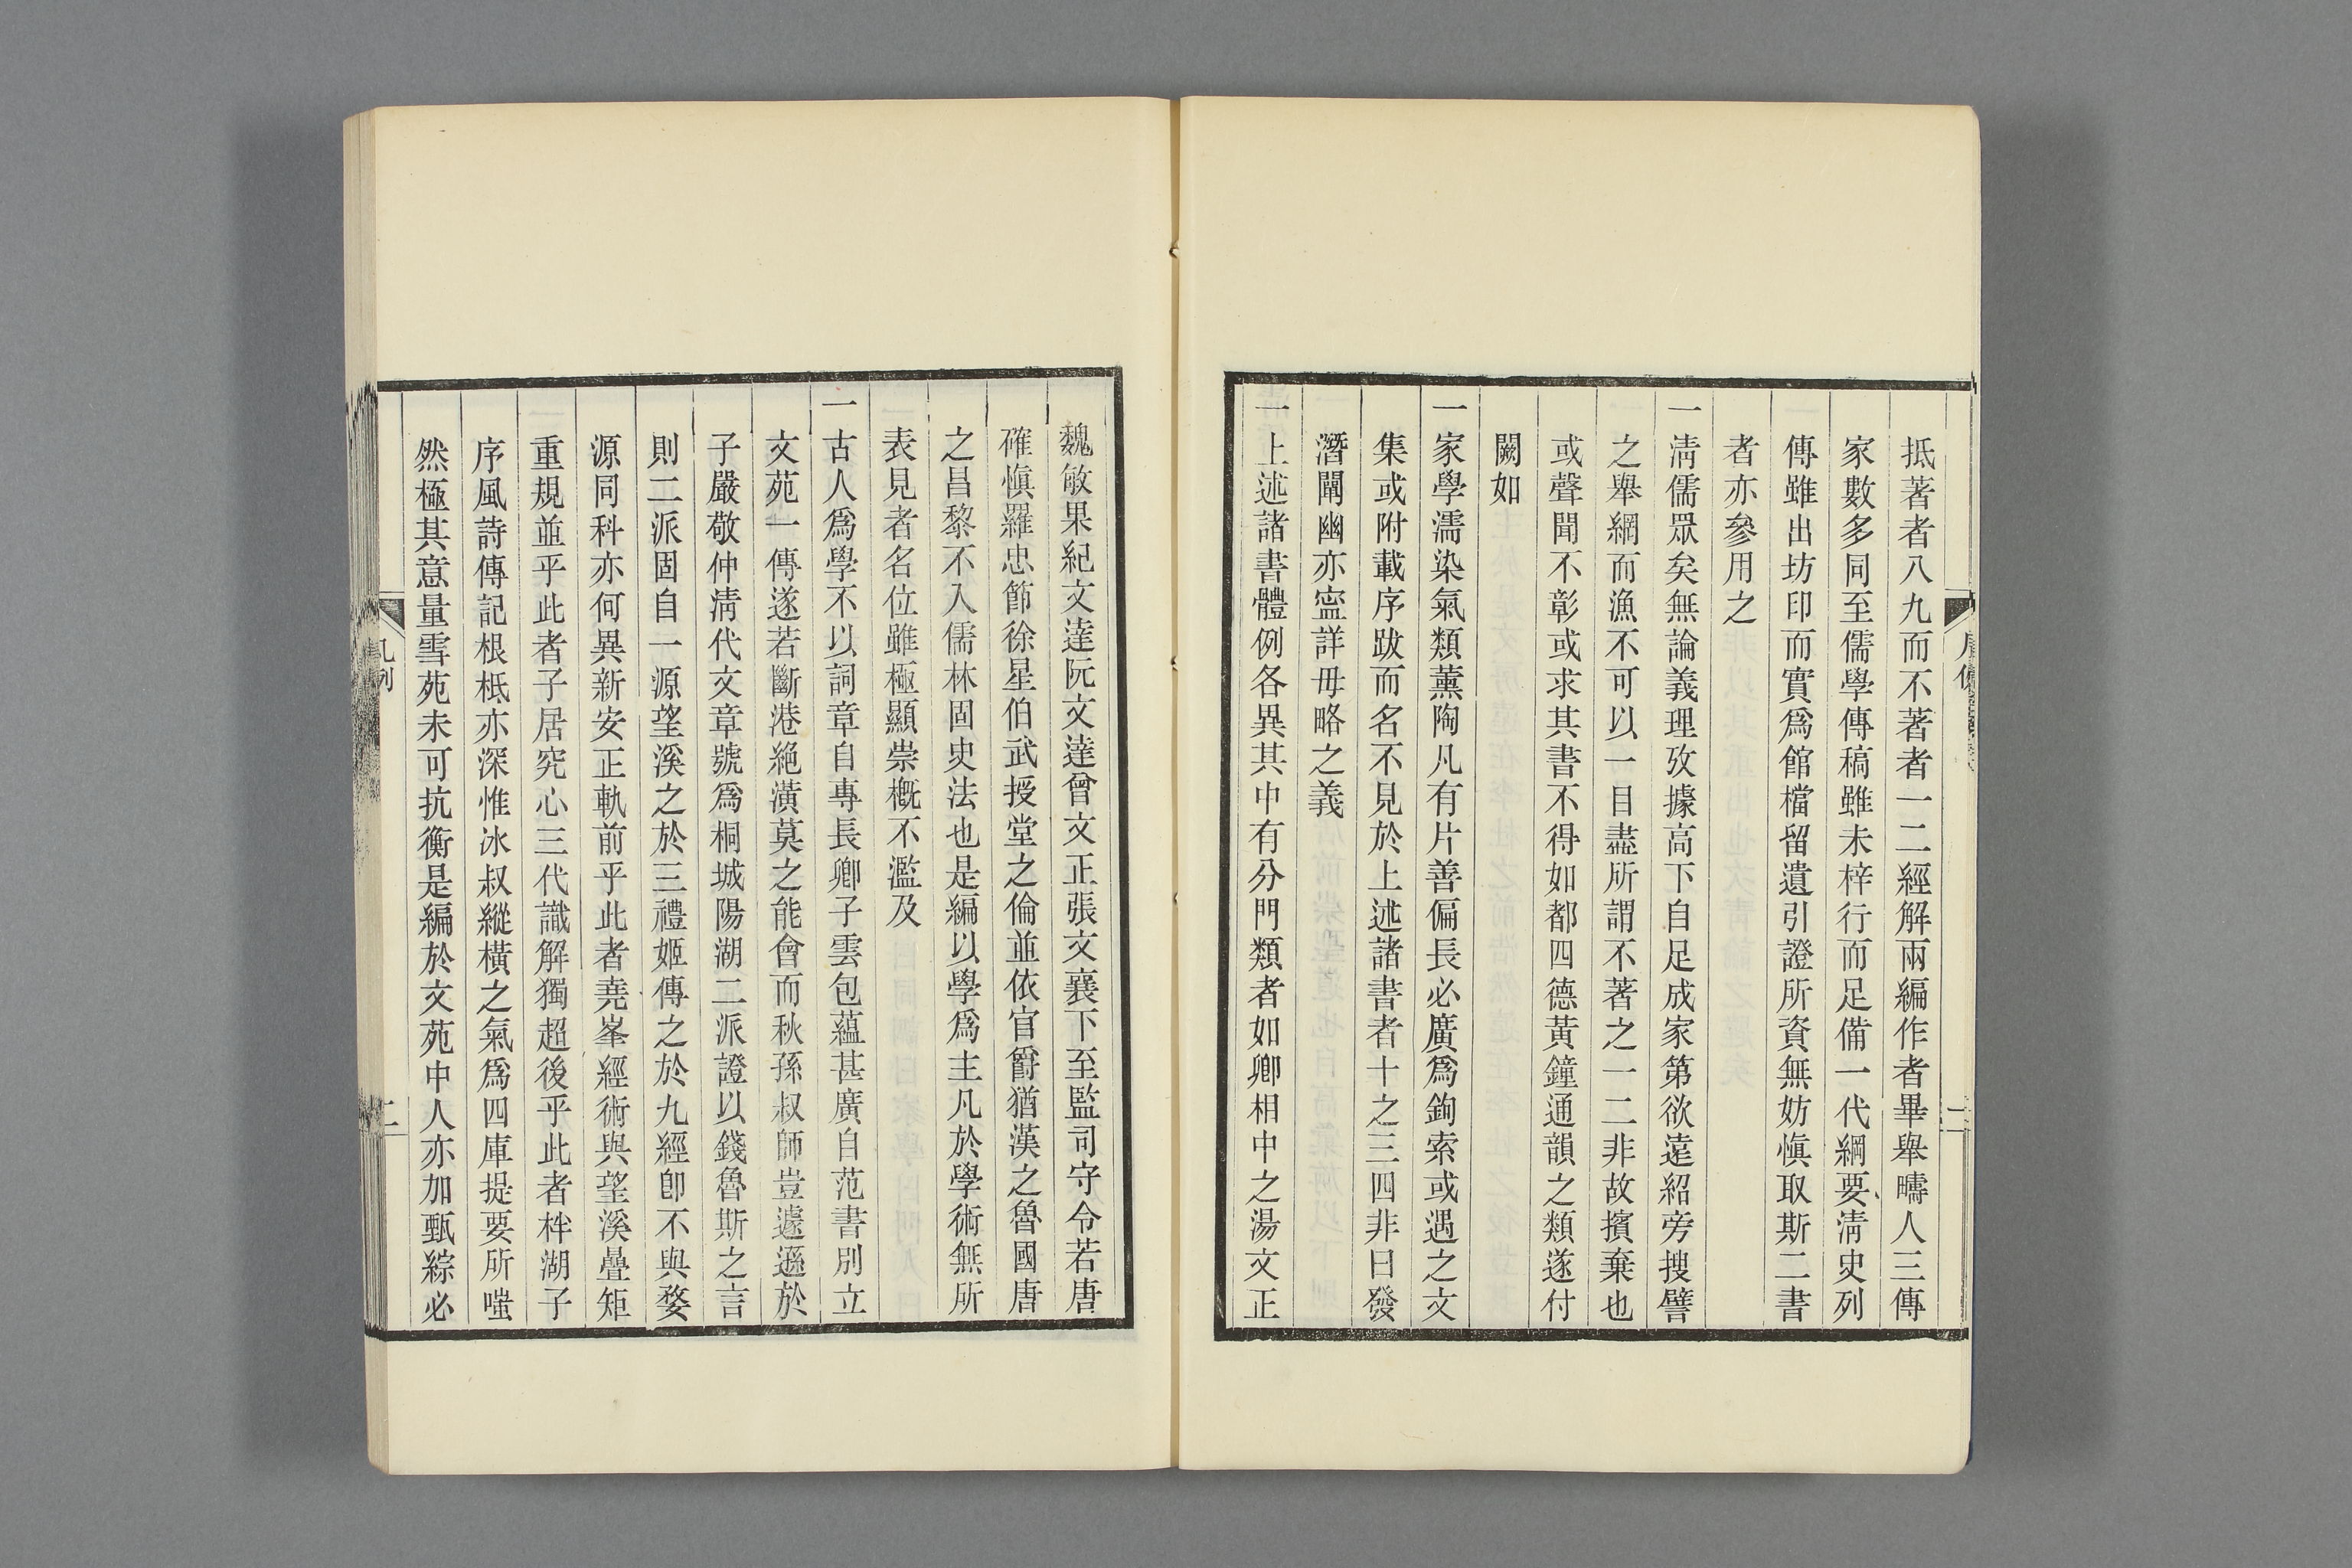 抵著者八九而不著者一二經解兩編作者畢舉疇人三傳
家數多同至儒學傳稿雖未梓行而足備一代綱要清史列
傳雖出坊印而實爲館檔留遺引證所資無妨愼取斯二書
者亦參用之
一清儒眾矣無論義理攷據高下自足成家第欲遠紹旁搜譬
之舉網而漁不可以一目盡所謂不著之一二非故擯棄也
或聲聞不彰或求其書不得如都四德黃鐘通韻之類遂付
闕如
一家學濡染氣類薰陶凡有片善偏長必廣爲鉤索或遇之文
集或附載序跋而名不見於上述諸書者十之三四非曰發
潛闡幽亦寍詳毋略之義
一上述諸書體例各異其中有分門類者如卿相中之湯文正
魏敏果紀文達阮文達曾文正張文襄下至監司守令若唐
確愼羅忠節徐星伯武授堂之倫並依官爵猶漢之魯國唐
之昌黎不入儒林固史法也是編以學爲主凡於學術無所
表見者名位雖極顯崇概不濫及
一古人爲學不以詞章自專長卿子雲包蘊甚廣自范書別立
文苑一傳遂若斷港絕潢莫之能會而秋孫叔師豈遽遜於
子嚴敬仲清代文章號爲桐城陽湖二派證以錢魯斯之言
則二派固自一源望溪之於三禮姬傳之於九經卽不與婺
源同科亦何異新安正軌前乎此者堯峯經術與望溪疊矩
重規並乎此者子居究心三代識解獨超後乎此者柈湖子
序風詩傳記根柢亦深惟冰叔縱橫之氣爲四庫提要所嗤
然極其意量雪苑未可抗衡是編於文苑中人亦加甄綜必
凡例
二